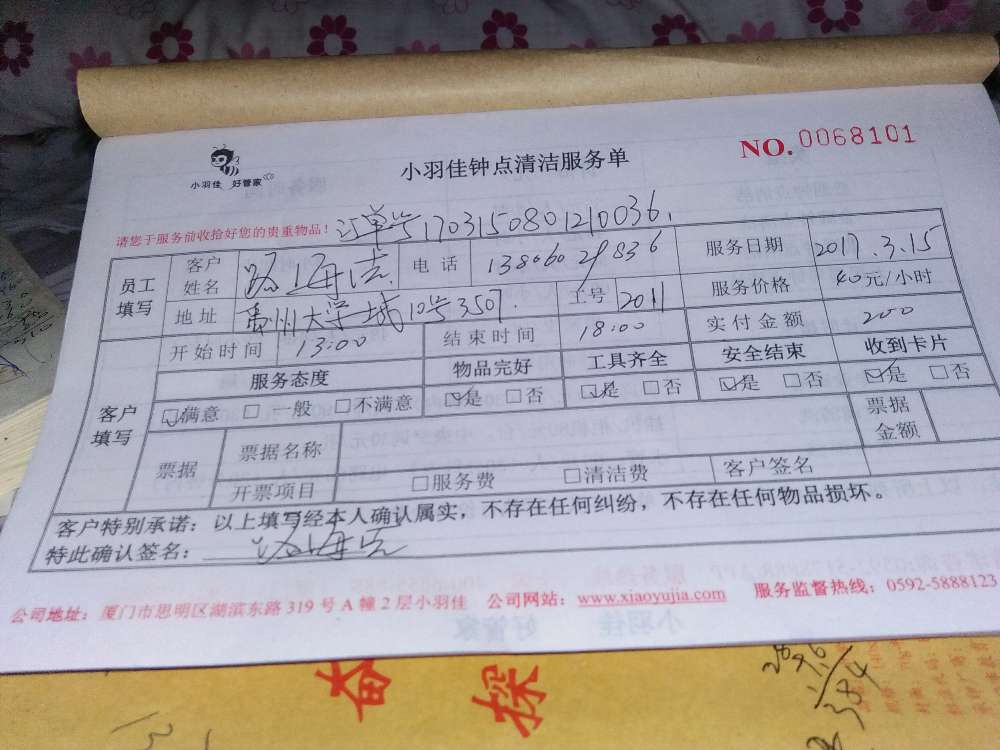 小羽佳 好管家
小羽佳钟点清洁服务单
NO.0068101
请您于服务前收拾好您的贵重物品!
订单号1703150801210036
员工填写 客户姓名 电话 13806029836 服务日期 2017.3.15
地址 大学城10号3507 工号 2011 服务价格 40元/小时
开始时间 13:00 结束时间 18:00 实付金额 200
客户填写 服务态度 物品完好 工具齐全 安全结束 收到卡片
☑满意 □一般 □不满意 ☑是 □否 ☑是 □否 ☑是 □否 ☑是 □否
票据 票据名称 票据金额
开票项目 □服务费 □清洁费 客户签名
客户特别承诺:以上填写经本人确认属实,不存在任何纠纷,不存在任何物品损坏。
特此确认签名:
公司地址:厦门市思明区湖滨东路 319 号 A 幢 2 层小羽佳 公司网站:www.xiaoyujia.com 服务监督热线:0592-5888123
奋 探
384